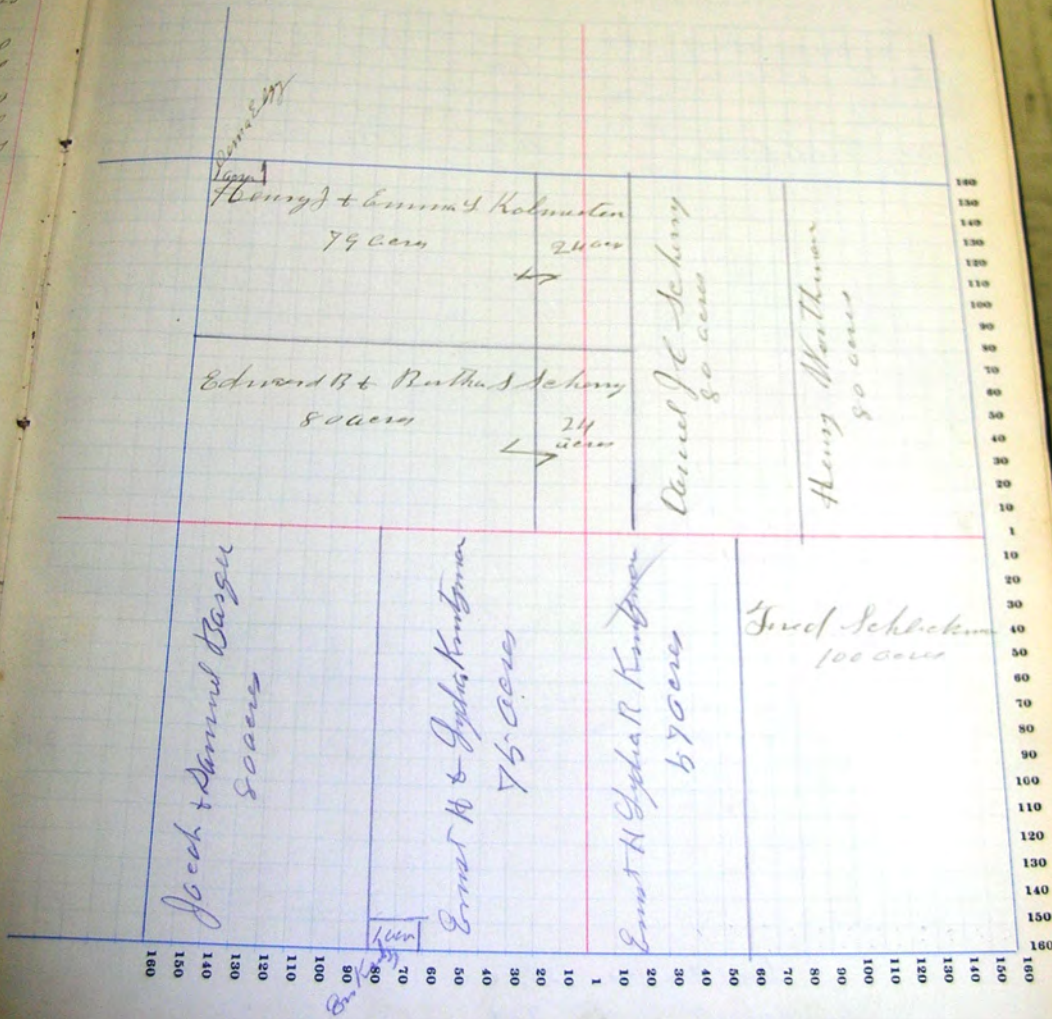 1 acre
Henry J + Emma L Kolmusten
79 acres
24 acr
Edward B + Bertha S Scherry
80 acres
24
acres
Daniel J C Scherry
80 acres
Henry Worthman
80 acres
Jacob + Samuel
80 acres
Ernest H + Lydia Kuntzman
1 acre
Ernst H Lydia R Kuntzman
acres
Fred
100 acres
160
150
140
130
120
110
100
90
80
70
60
50
40
30
20
10
1
10
20
30
40
50
60
70
80
90
100
110
120
130
140
150
160
160 150 140 130 120 110 100 90 80 70 60 50 40 30 20 10 1 10 20 30 40 50 60 70 80 90 100 110 120 130 140 150 160